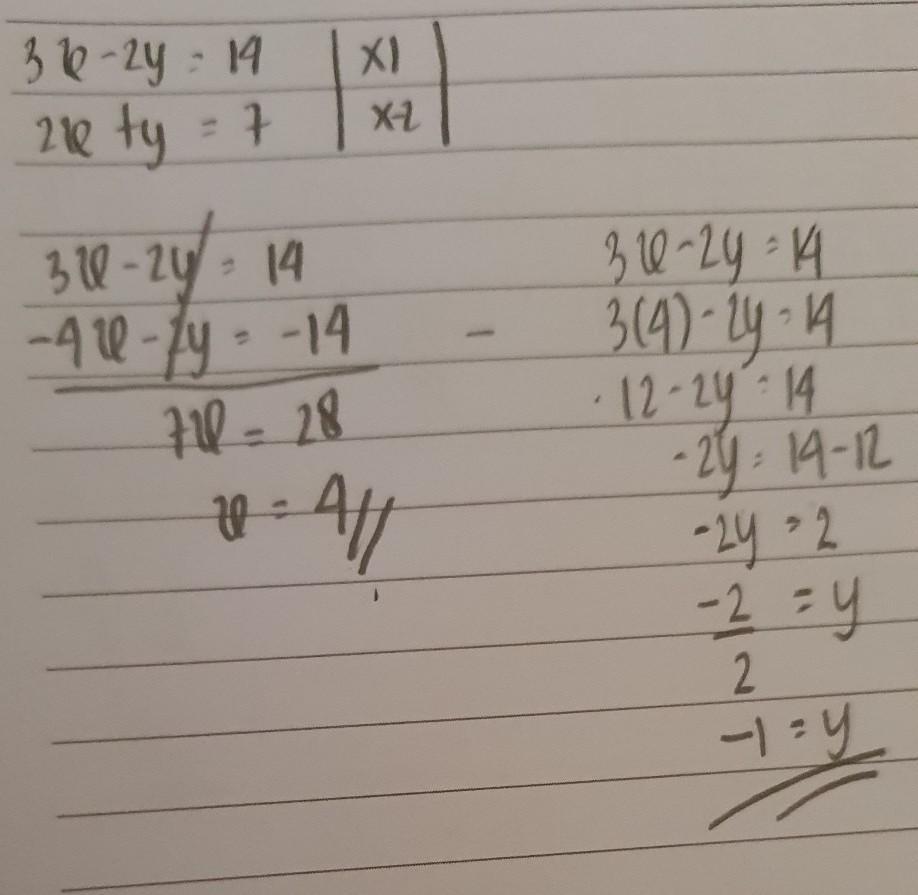 3x - 2y = 14 | x1 |
2x + y = 7 | x-2 |
3x - 2y = 14
-4x - 2y = -14 -
7x = 28
x = 4 //
3x - 2y = 14
3(4) - 2y = 14
12 - 2y = 14
-2y = 14 - 12
-2y = 2
-2 = y
2
-1 = y